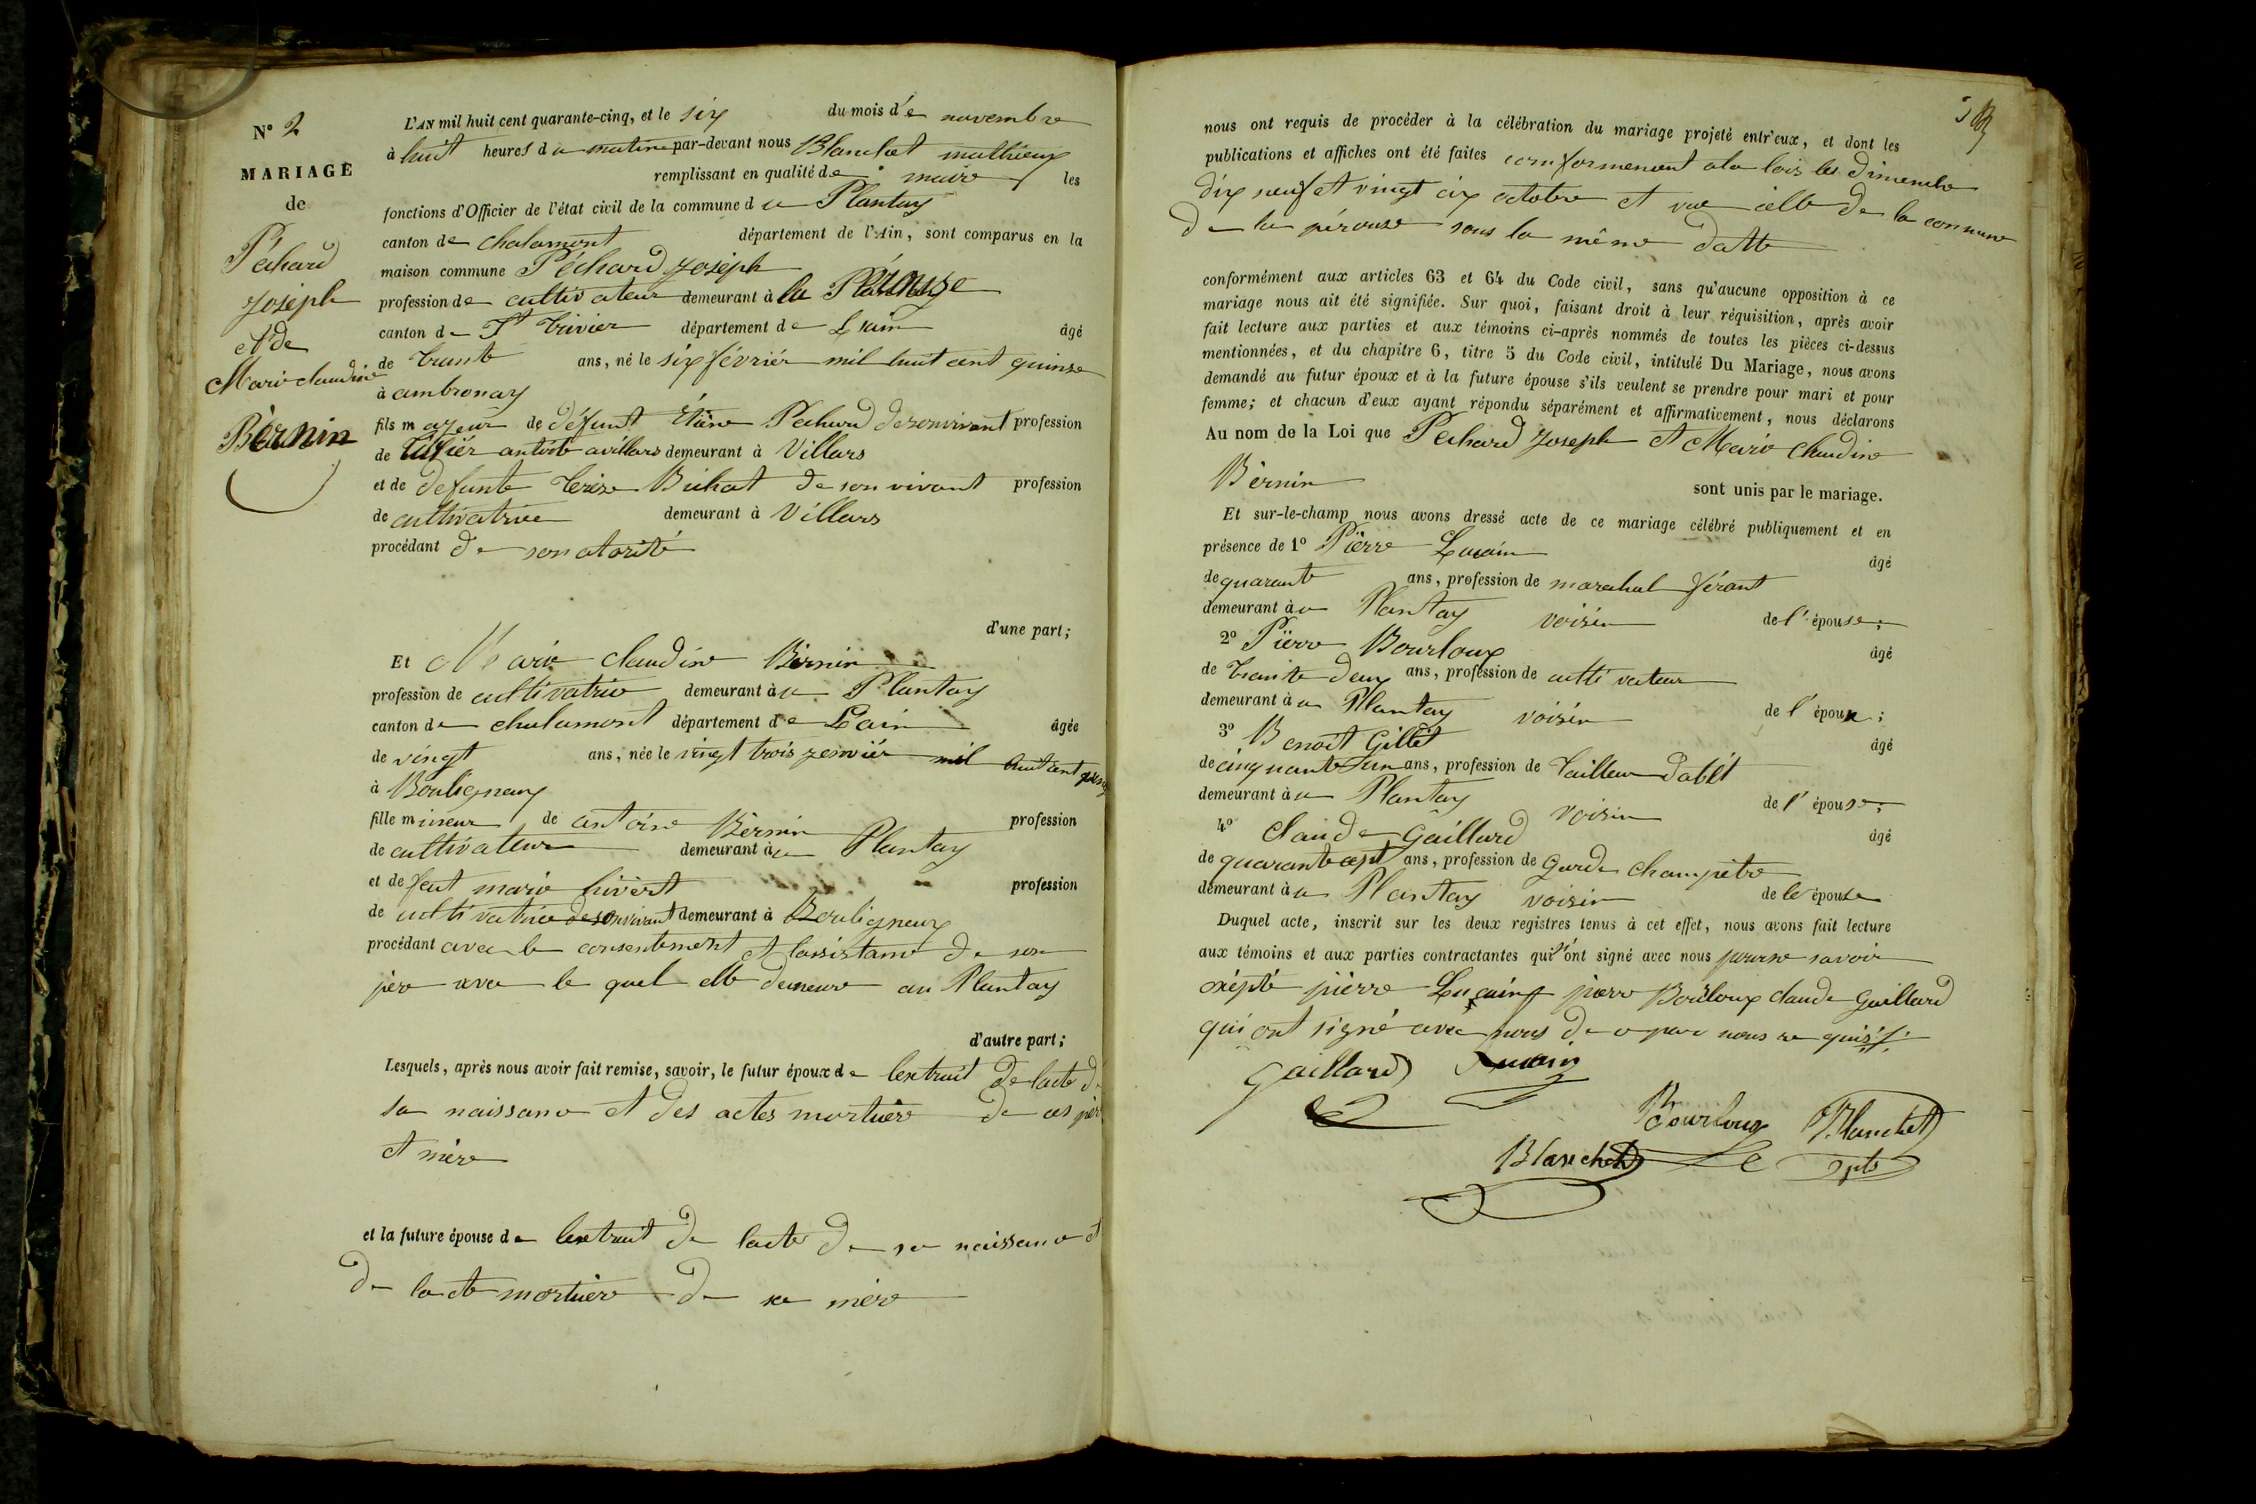 N° 2
MARIAGE
de
Péchard
Joseph
et de
Marie claudine
Bernin
L'AN mil huit cent quarante-cinq, et le six du mois de novembre
à huit heures du matin par-devant nous Blanchet mathieux
remplissant en qualité de maire les
fonctions d'Officier de l'état civil de la commune du Plantay
canton de chalamont département de l'Ain, sont comparus en la
maison commune Péchard Joseph
profession de cultivateur demeurant à la Pérouze
canton de St Trivier département de Lain âgé
de trente ans, né le six février mil huit cent quinze
à ambronay
fils majeur de défunt Étiène Pechard de son vivant profession
de demeurant à Villars
et de defunte Terèse Bichat de son vivant profession
de cultivatrice demeurant à Villars
procédant de son otorité
d'une part;
Et Marie claudine Bernin
profession de cultivatrice demeurant au Plantay
canton de chalamont département de Lain âgée
de vingt ans, née le vingt trois janvier mil huit cent
à Bouligneux
fille mineur de antoine Bernin profession
de cultivateur demeurant au Plantay
et de feut marie hivert profession
de cultivatrice de son vivant demeurant à Bouligneux
procédant avec le consentement et lassistance de son
père avec le quel elle demeure au Plantay
d'autre part;
Lesquels, après nous avoir fait remise, savoir, le futur époux de lextrait de lacte de
sa naissance et des actes mortuère de ces père
et mère
et la future épouse de lextrait de lacte de sa naissance et
de lacte mortuère de sa mère
nous ont requis de procéder à la célébration du mariage projeté entr'eux, et dont les
publications et affiches ont été faites conformement a la lois les dimenche
dix neuf et vingt cix octobre et vue celle de la commune
de la pérouse sous la même datte
conformément aux articles 63 et 64 du Code civil, sans qu'aucune opposition à ce
mariage nous ait été signifiée. Sur quoi, faisant droit à leur réquisition, après avoir
fait lecture aux parties et aux témoins ci-après nommés de toutes les pièces ci-dessus
mentionnées, et du chapitre 6, titre 5 du Code civil, intitulé Du Mariage, nous avons
demandé au futur époux et à la future épouse s'ils veulent se prendre pour mari et pour
femme; et chacun d'eux ayant répondu séparément et affirmativement, nous déclarons
Au nom de la Loi que Pechard Joseph et Marie Claudine
Bernin sont unis par le mariage.
Et sur-le-champ nous avons dressé acte de ce mariage célébré publiquement et en
présence de 1° Pierre Lucain âgé
de quarante ans, profession de marechal férant
demeurant au Plantay voisin de l'épouse;
2° Pierre Bourloux âgé
de trente deux ans, profession de cultivateur
demeurant au Plantay voisin de l'époux;
3° Benoit Gillet âgé
de cinquante un ans, profession de tailleur dabit
demeurant au Plantay voisin de l'épouse;
4° Claude Gaillard âgé
de quarante cept ans, profession de garde champêtre
demeurant au Plantay voisin de le épouse
Duquel acte, inscrit sur les deux registres tenus à cet effet, nous avons fait lecture
aux témoins et aux parties contractantes qui n'ont signé avec nous pour ne savoir
exépté pierre Lucain pierre Bourloux claude Gaillard
qui ont signé avec nous de ce par nous requis
Gaillard Lucain
Bourloux Blanchet
Blanchet